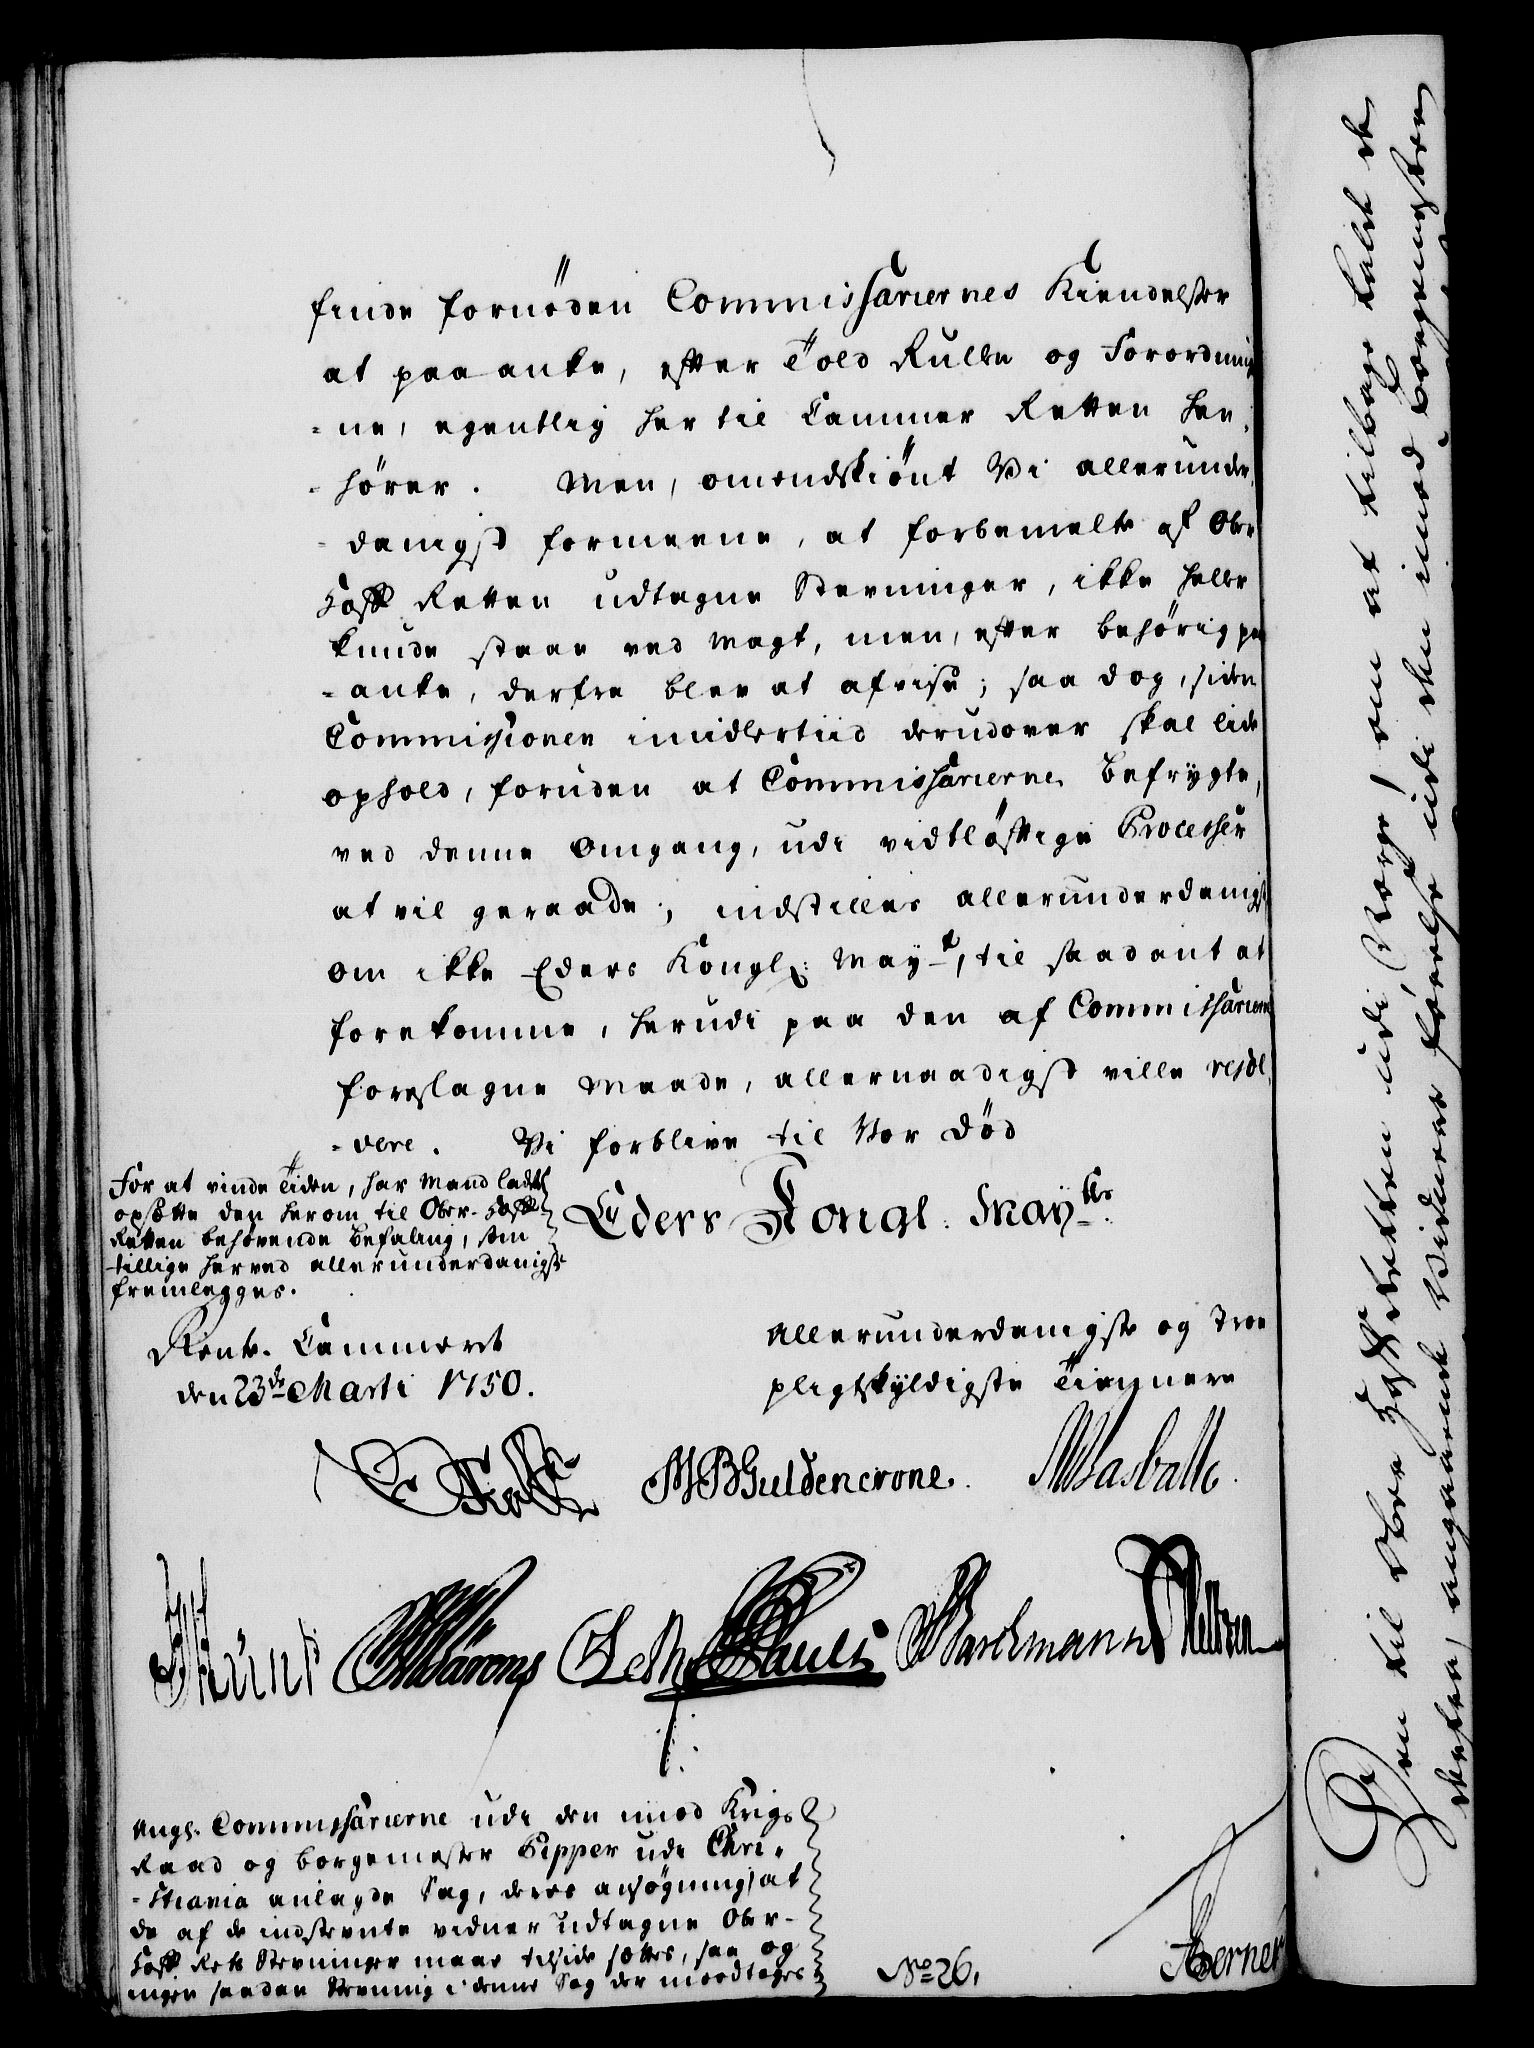 finde fornöden Commissariernes Kiendelser
at paaanke, efter Told Rullen og Forordning
-ne, egentlig her til Cammer Retten hen-
-hörer. Men, omendskiönt Vi allerunder-
-danigst formeene, at forbemelte af Ober
Hoff Retten udtagne Stevninger, ikke heller
kunde staae ved Magt, men, efter behörig paa
-anke, derfra blev at afviise; saa dog, siden
Commissionen imidlertiid derudover skal lide
ophold, foruden at Commissarierne befrygte,
ved denne Omgang, udi vidtlöftige Processer
at vil geraade; indstilles allerunderdanigst
om ikke Eders Kongl: May-t, til saadant at
forekomme, herudi paa den af Commissarierne
foreslagne Maade, allernaadigst ville resol-
-vere. Vi forblive til Vor Död
For at vinde Tiden, har Mand ladet
opsætte den herom til Ober-Hoff-
Retten behövende Befaling, som
tillige herved allerunderdanigst
fremlegges.
Eders Kongl. May-ts
Rente-Cammeret
den 23de Marti 1750.
Allerunderdanigste og Troe
pligtskyldigste Tienere
MBGuldencrone. Wasballe.
Pauli Barchmann Neltzen
Angl. Commissarierne udi den imod Krigs
Raad og borgemester Pipper udi Chri-
-stiania anlagde Sag, deres ansögning, at
de af de indstevnte vidner udtagne Ober-
Hoff Rets Stevninger maae tilside sættes, saa og
ingen saadan Stevning i denne Sag der modtages
No 26.
Berner
Den til Ober Hoff Retten udi Norge, om at tilbage kalde de
Retten, angaaende Vidners förelse udi den imod Borgemesteren